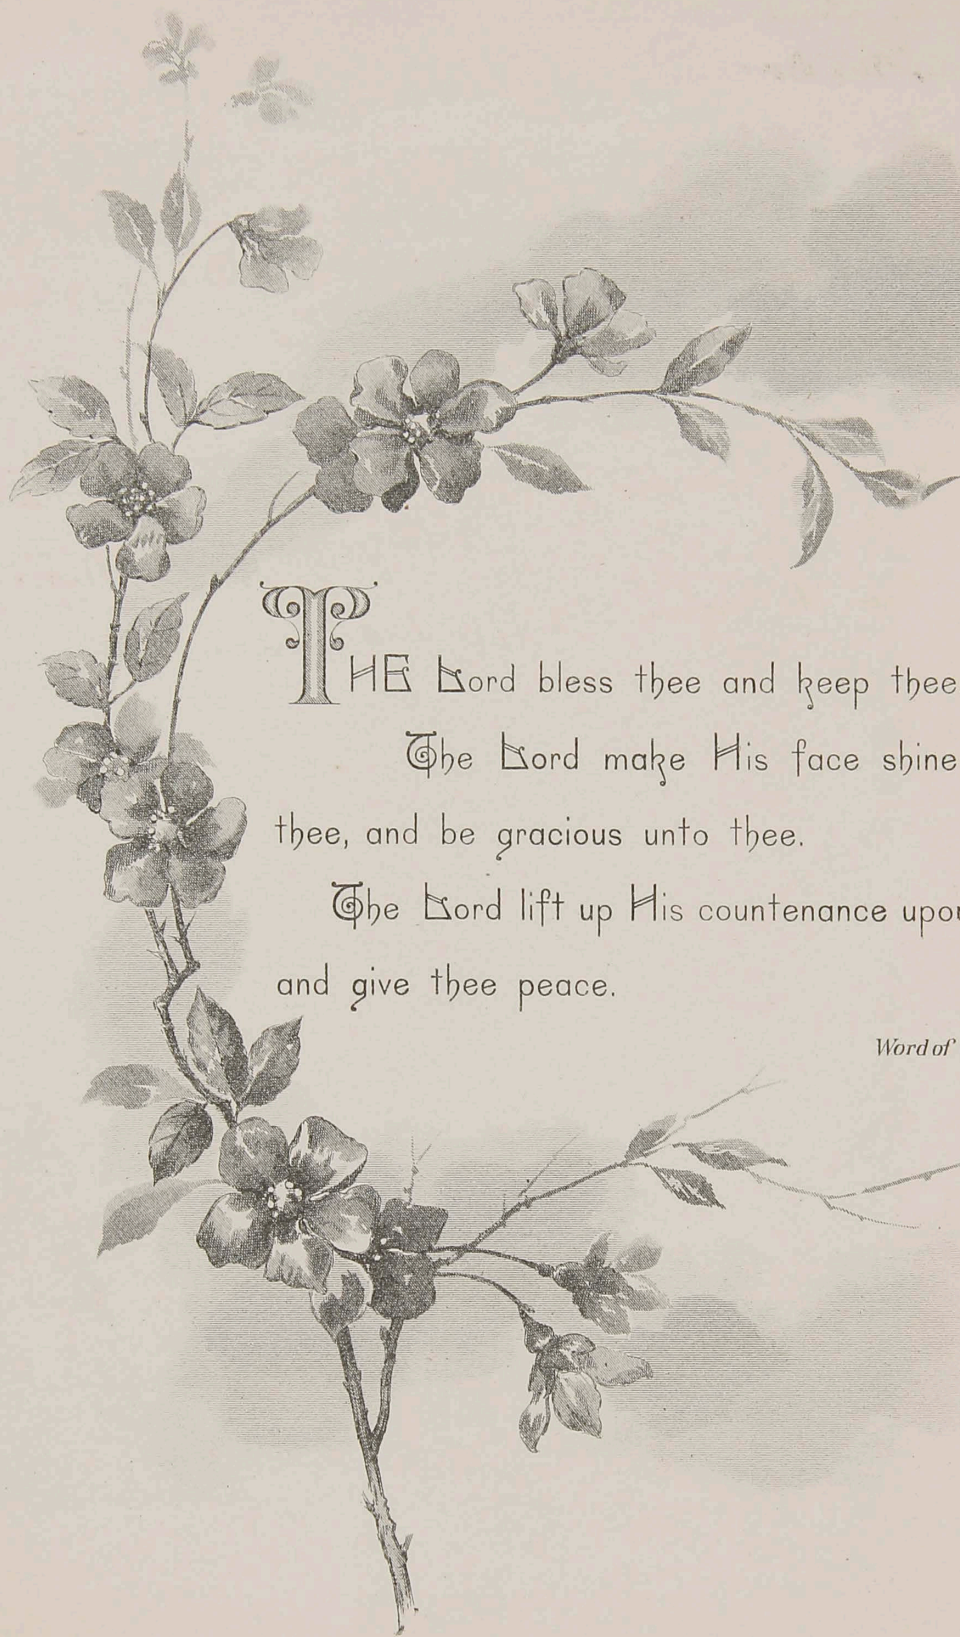 THE Lord bless thee and keep thee
The Lord make His face shine
thee, and be gracious unto thee.
The Lord lift up His countenance upon
and give thee peace.
Word of